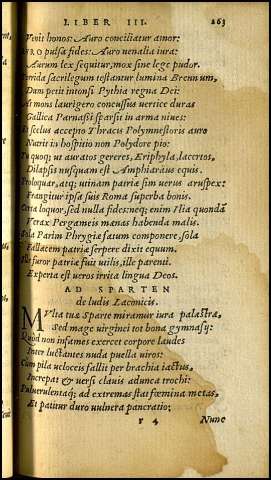 LIBER III. 263
Venit honos: Auro conciliatur amor:
Auro pulsa fides: Auro uenalia iura:
Aurum lex sequitur, mox sine lege pudor.
Torrida sacrilegum testantur lumina Brennum,
Dum petit intonsi Pythia regna Dei:
At mons laurigero concussus uertice duras
Gallica Parnasi sparsit in arma niues:
Et scelus accepto Thracis Polymnestoris auro
Nutrit in hospitio non Polydore pio:
Tu quoq; ut auratos gereres, Eriphyla, lacertos,
Dilapsis nusquam est Amphiaraus equis.
Proloquar, atq; utinam patriæ sim uerus aruspex:
Frangitur ipsa suis Roma superba bonis.
Certa loquor, sed nulla fides: neq; enim Ilia quondā
Verax Pergameis mænas habenda malis.
Sola Parim Phrygiæ fatum componere, sola
Fallacem patriæ serpere dixit equum.
Ille furor patriæ fuit utilis, ille parenti.
Experta est ueros irrita lingua Deos.
AD SPARTEN
de ludis Laconicis.
MVlta tuæ Sparte miramur iura palæstræ,
Sed mage uirginei tot bona gymnasij:
Quod non infames exercet corpore laudes
Inter luctantes nuda puella uiros:
Cum pila ueloceis fallit per brachia iactus,
Increpat & uersi clauis adunca trochi:
Puluerulentaq; ad extremas stat fœmina metas,
Et patitur duro uulnera pancratio;
r 4 Nunc